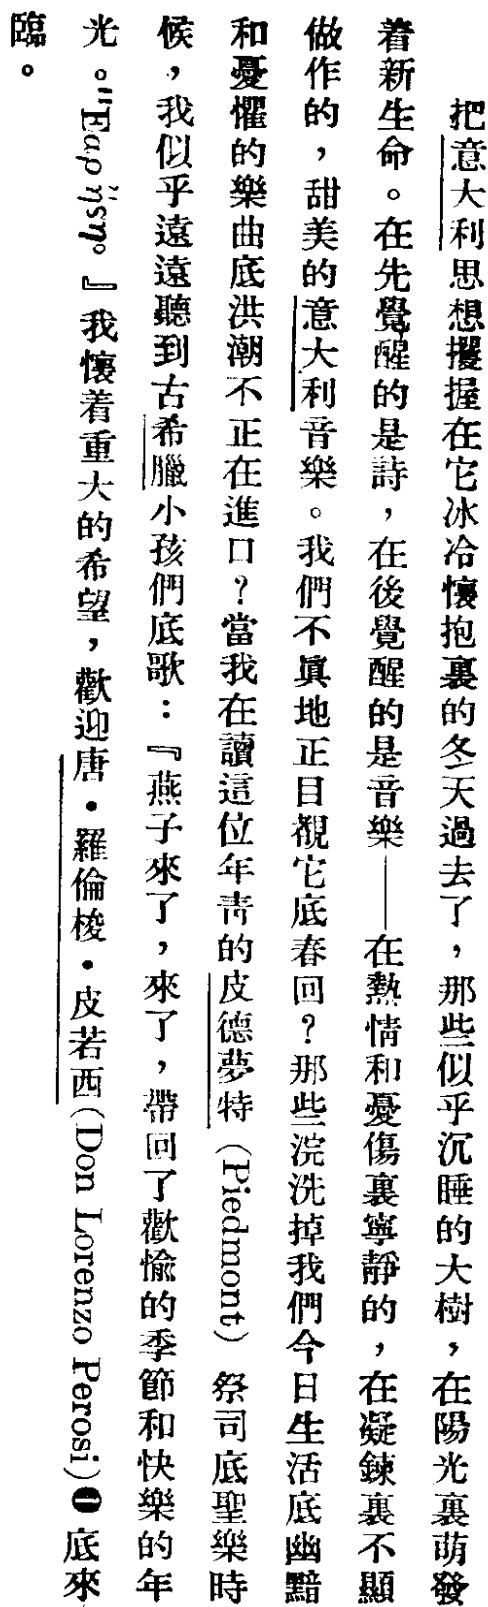 把意大利思想攫握在它冰冷懷抱裏的冬天過去了，那些似乎沉睡的大樹，在陽光裏萌發
着新生命。在先覺醒的是詩，在後覺醒的是音樂——在熱情和憂傷裏寧靜的，在凝鍊裏不顯
做作的，甜美的意大利音樂。我們不眞地正目覩它底春回？那些浣洗掉我們今日生活底幽黯
和憂懼的樂曲底洪潮不正在進口？當我在讀這位年靑的皮德夢特（Piedmont）祭司底聖樂時
候，我似乎遠遠聽到古希臘小孩們底歌：『燕子來了，來了，帶回了歡愉的季節和快樂的年
光。"Εαρ ἤδη。』我懷着重大的希望，歡迎唐·羅倫梭·皮若西(Don Lorenzo Perosi)㊀底來
臨。